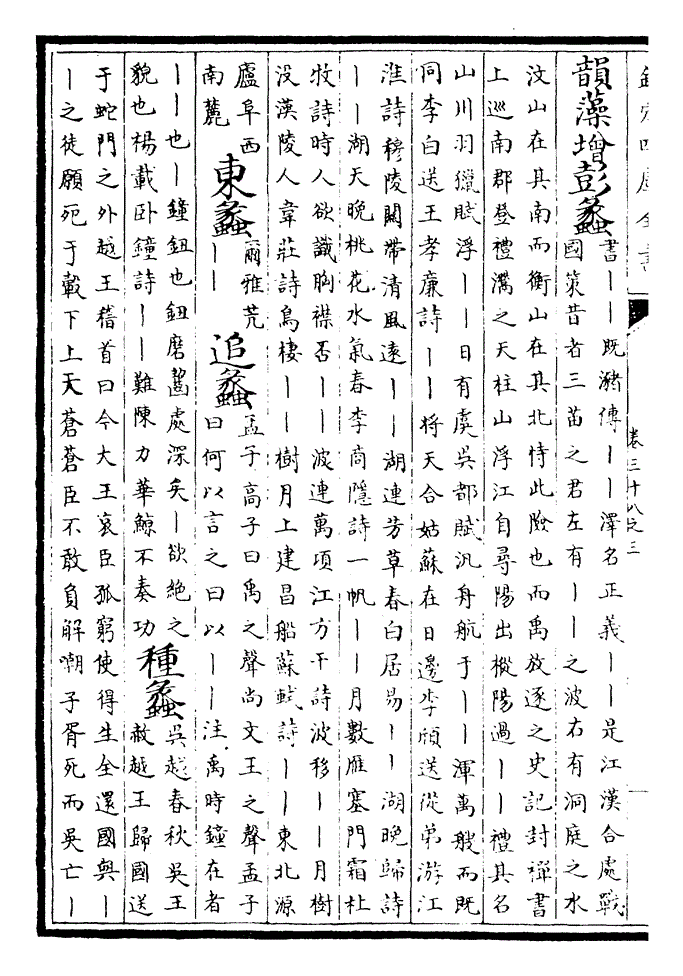 卷三十八之三
一
韻藻增彭蠡
書丨丨既豬傳丨丨澤名正義丨丨是江漢合處戰
國策昔者三苗之君左有丨丨之波右有洞庭之水
汶山在其南而衡山在其北恃此險也而禹放逐之史記封禪書
上巡南郡登禮灊之天柱山浮江自尋陽出樅陽過丨丨禮其名
山川羽獵賦浮丨丨日有虞吳都賦汎舟航于丨丨渾萬艘而既
同李白送王孝廉詩丨丨將天合姑蘇在日邊李頎送從弟游江
淮詩穆陵關帶清風遠丨丨湖連芳草春白居易丨丨湖晚歸詩
丨丨湖天晚桃花水氣春李商隱詩一帆丨丨月數雁塞門霜杜
牧詩時人欲識胸襟否丨丨波連萬頃江方干詩波移丨丨月樹
没漢陵人韋莊詩烏棲丨丨樹月上建昌船蘇軾詩丨丨東北源
廬阜西
南麓
東蠡
爾雅荒
丨丨
追蠡
孟子高子曰禹之聲尚文王之聲孟子
曰何以言之曰以丨丨注禹時鐘在者
丨丨也丨鐘鈕也鈕磨齧處深矣丨欲絶之
貌也楊載卧鐘詩丨丨難陳力華鯨不奏功
種蠡
吳越春秋吳王
赦越王歸國送
于蛇門之外越王稽首曰今大王哀臣孤窮使得生全還國與丨
丨之徒願死于轂下上天蒼蒼臣不敢負解嘲子胥死而吳亡丨